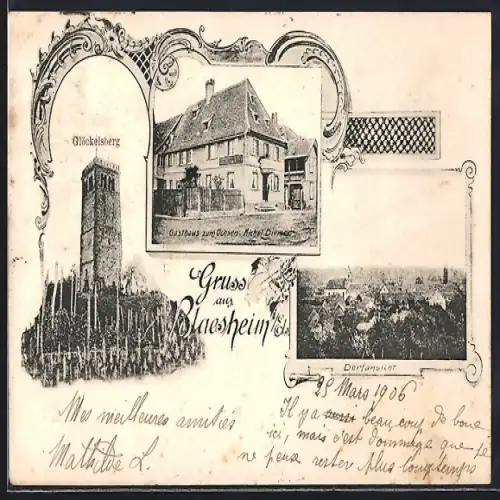 Glöckelsberg
Gasthaus zum Ochsen
Gruss
aus
Blaesheim i/Els
Dorfansicht
25 Mars 1906
Mes meilleures amitiés
Mathilde L.
Il y a aussi beaucoup de boue
ici, mais c'est dommage que je
ne peux rester plus longtemps